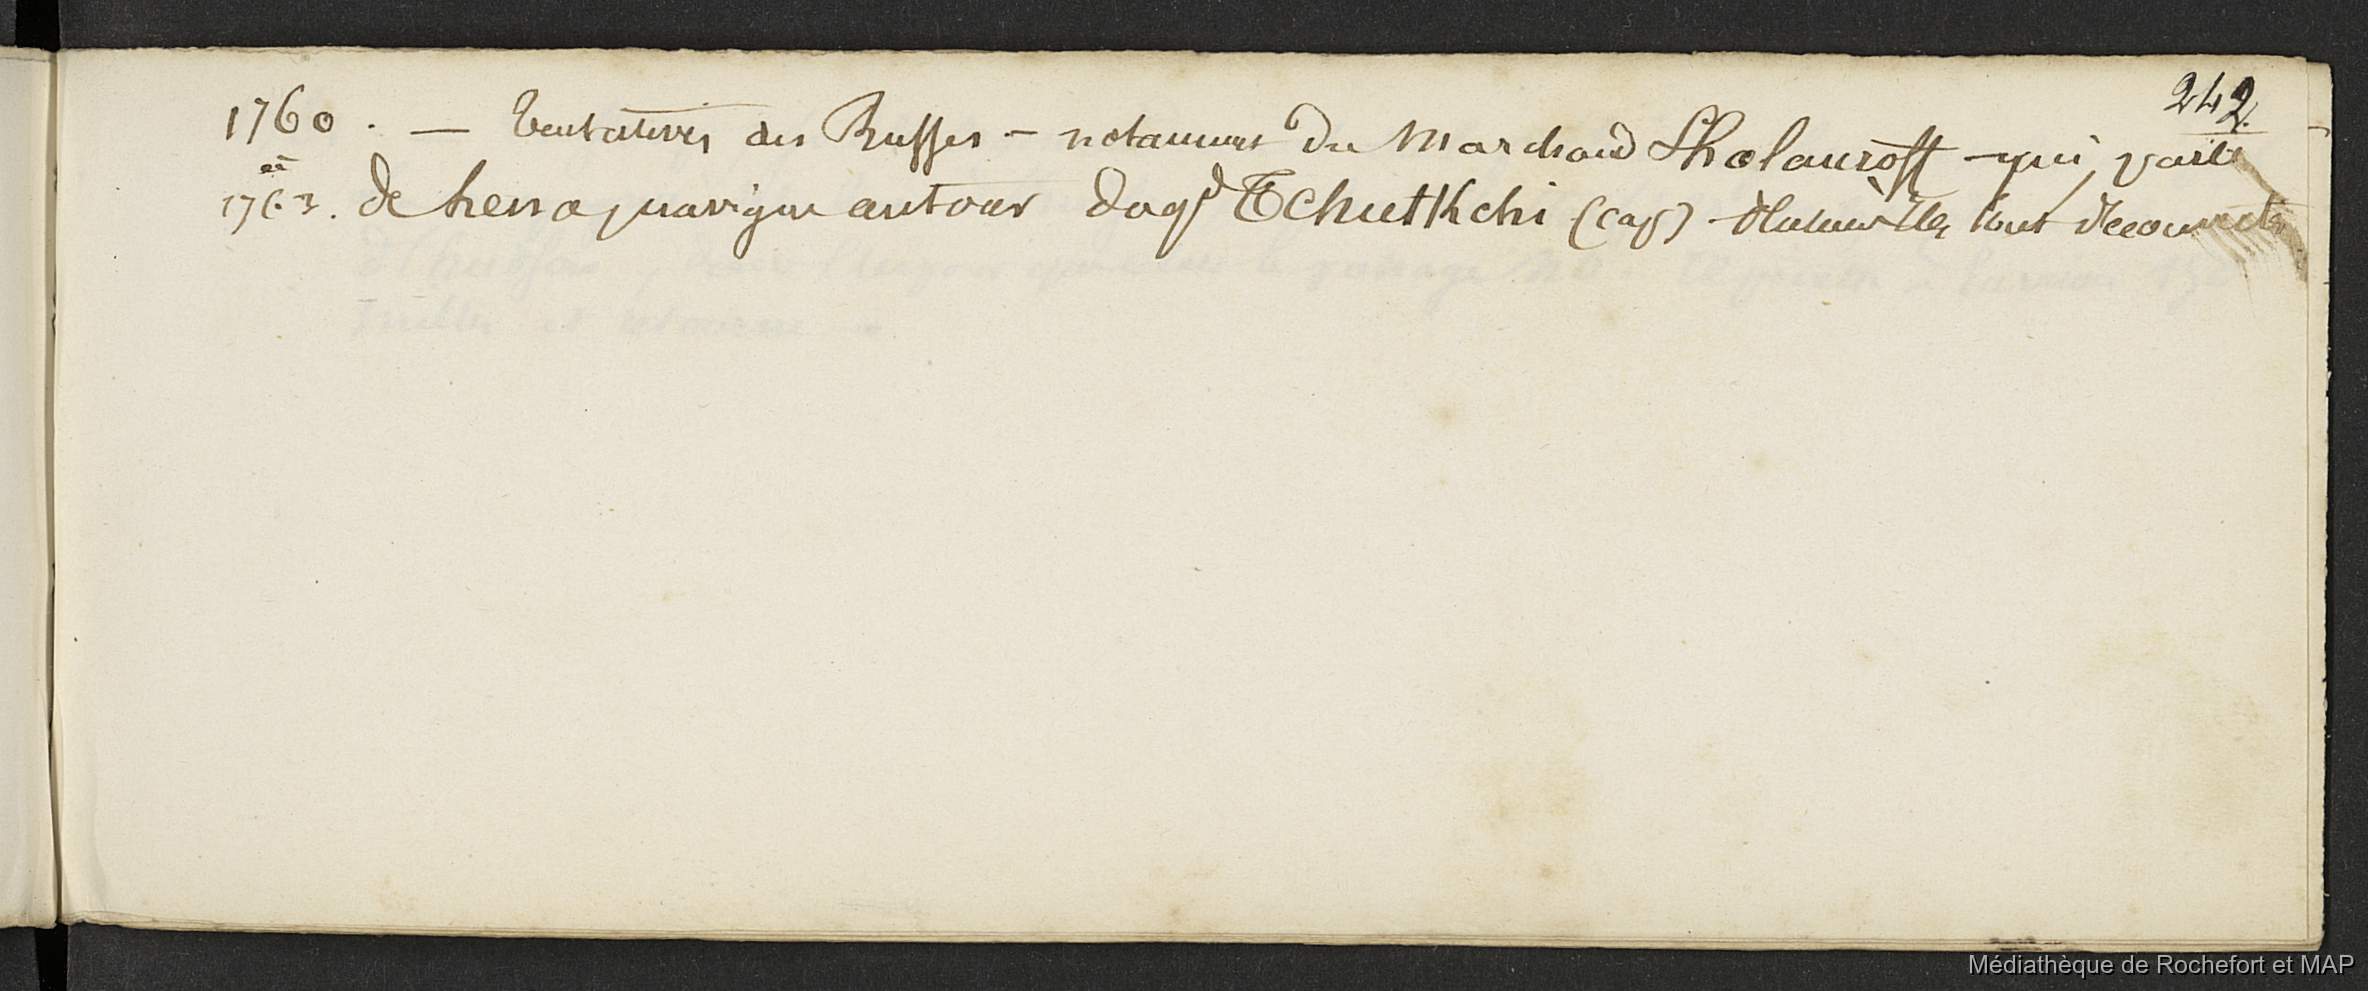 242.
1760. — Tentatives des Russes — notamment du Marchand Shalauroff — qui, parti
et
1763. de hena, navigue autour du gd Tchutkchi (cap) plusieurs Iles sont découvertes
Médiathèque de Rochefort et MAP